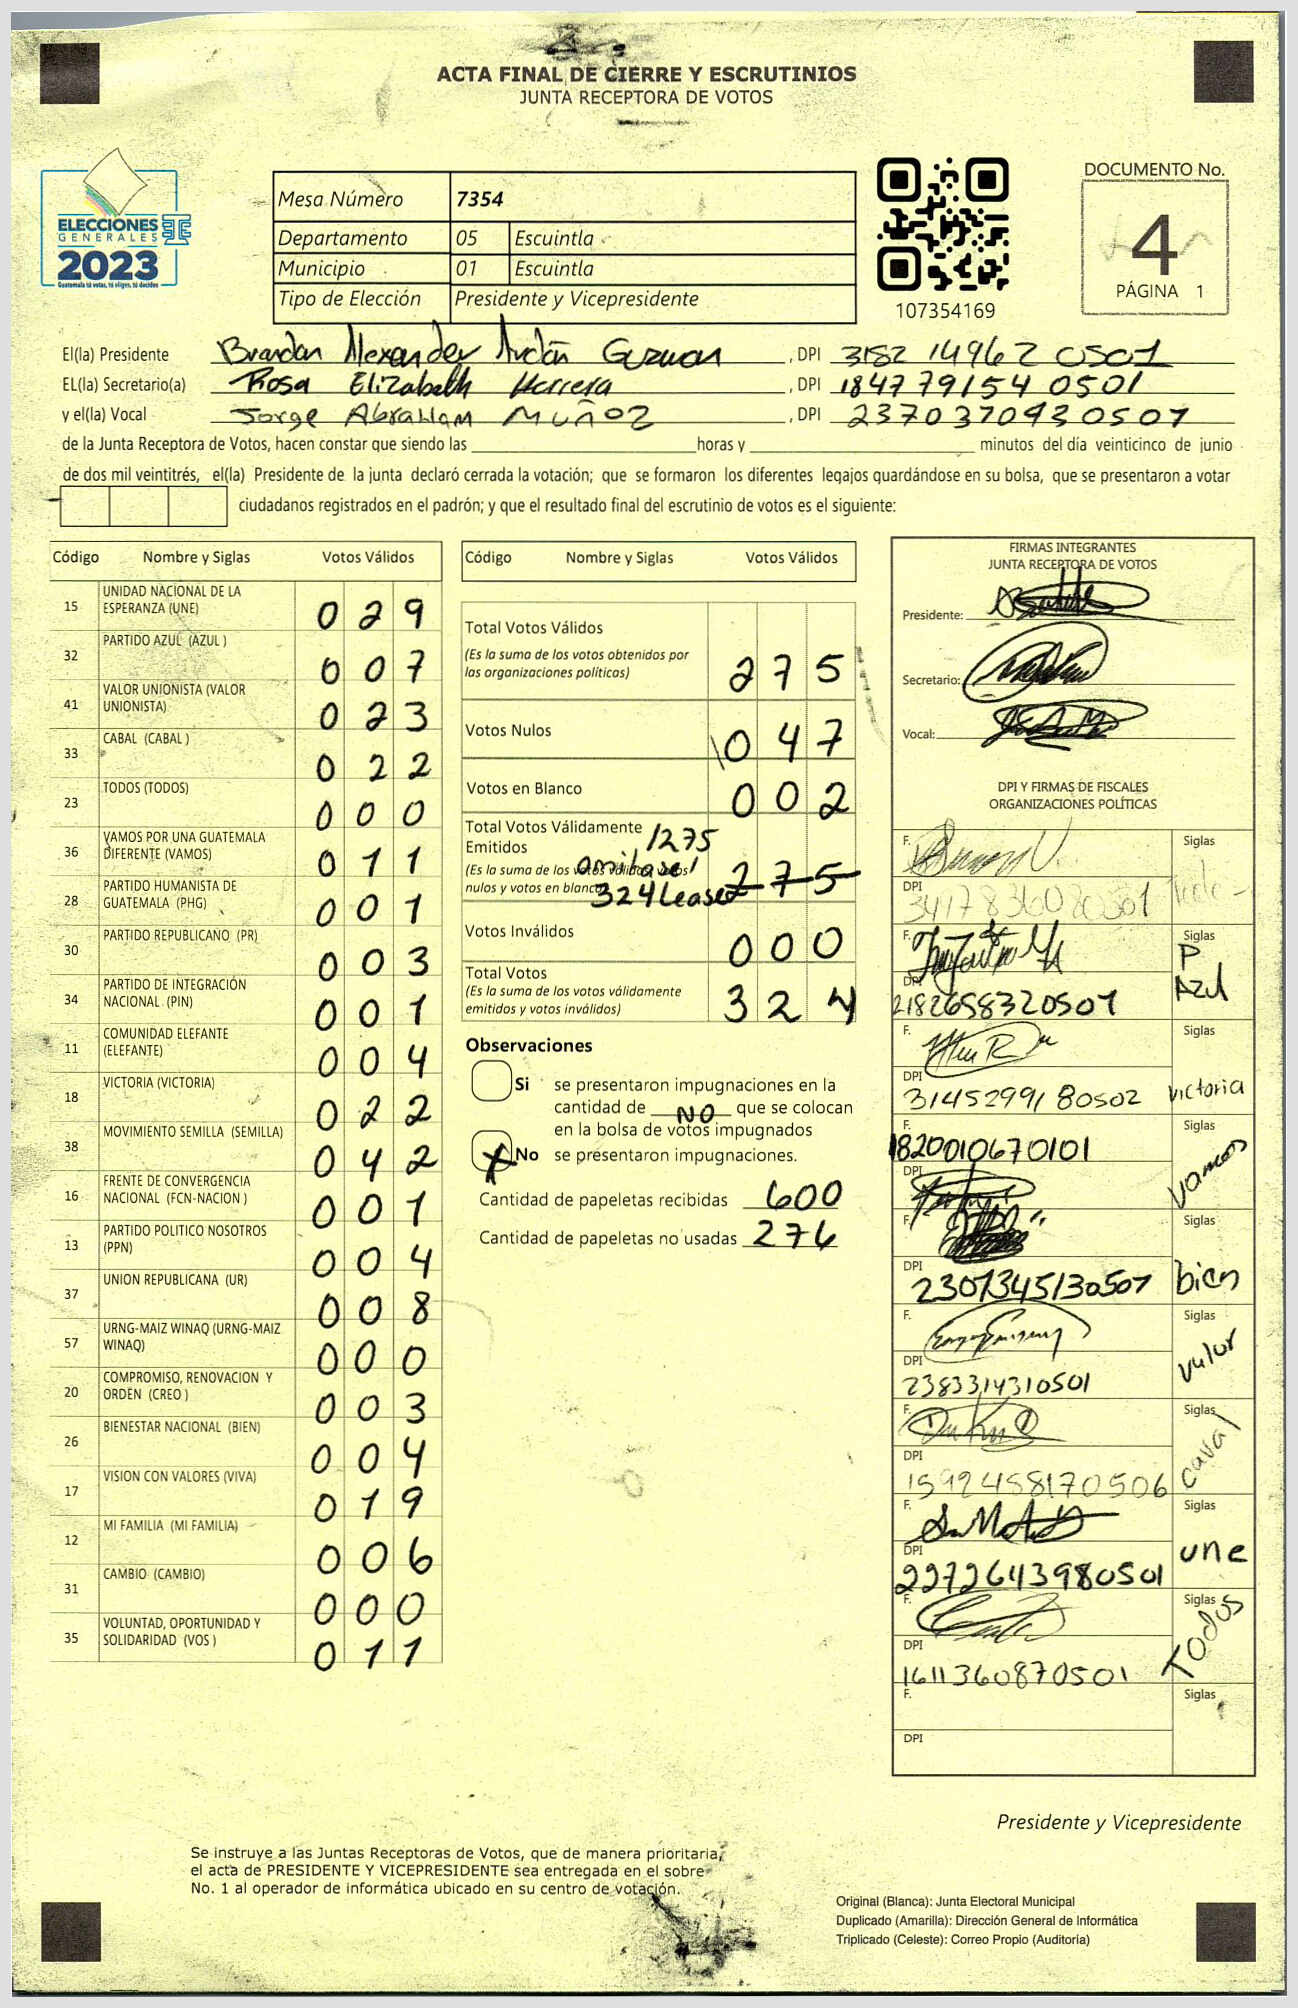 ACTA FINAL DE CIERRE Y ESCRUTINIOS
JUNTA RECEPTORA DE VOTOS
ELECCIONES
GENERALES
2023
Guatemala tú votas, tú eliges, tú decides
Mesa Número 7354
Departamento 05 Escuintla
Municipio 01 Escuintla
Tipo de Elección Presidente y Vicepresidente
107354169
DOCUMENTO No.
4
PÁGINA 1
El(la) Presidente Brandon Alexander Guzman , DPI 3182 14962 0501
EL(la) Secretario(a) Rosa Elizabeth Herrera , DPI 184779154 0501
y el(la) Vocal Jorge Abraham Muñoz , DPI 2370370930501
de la Junta Receptora de Votos, hacen constar que siendo las horas y minutos del día veinticinco de junio
de dos mil veintitrés, el(la) Presidente de la junta declaró cerrada la votación; que se formaron los diferentes legajos guardándose en su bolsa, que se presentaron a votar
ciudadanos registrados en el padrón; y que el resultado final del escrutinio de votos es el siguiente:
Código Nombre y Siglas Votos Válidos
15 UNIDAD NACIONAL DE LA
ESPERANZA (UNE) 0 2 9
32 PARTIDO AZUL (AZUL ) 0 0 7
41 VALOR UNIONISTA (VALOR
UNIONISTA) 0 2 3
33 CABAL (CABAL ) 0 2 2
23 TODOS (TODOS) 0 0 0
36 VAMOS POR UNA GUATEMALA
DIFERENTE (VAMOS) 0 1 1
28 PARTIDO HUMANISTA DE
GUATEMALA (PHG) 0 0 1
30 PARTIDO REPUBLICANO (PR) 0 0 3
34 PARTIDO DE INTEGRACIÓN
NACIONAL (PIN) 0 0 1
11 COMUNIDAD ELEFANTE
(ELEFANTE) 0 0 4
18 VICTORIA (VICTORIA) 0 2 2
38 MOVIMIENTO SEMILLA (SEMILLA) 0 4 2
16 FRENTE DE CONVERGENCIA
NACIONAL (FCN-NACION ) 0 0 1
13 PARTIDO POLITICO NOSOTROS
(PPN) 0 0 4
37 UNION REPUBLICANA (UR) 0 0 8
57 URNG-MAIZ WINAQ (URNG-MAIZ
WINAQ) 0 0 0
20 COMPROMISO, RENOVACION Y
ORDEN (CREO ) 0 0 3
26 BIENESTAR NACIONAL (BIEN) 0 0 4
17 VISION CON VALORES (VIVA) 0 1 9
12 MI FAMILIA (MI FAMILIA) 0 0 6
31 CAMBIO (CAMBIO) 0 0 0
35 VOLUNTAD, OPORTUNIDAD Y
SOLIDARIDAD (VOS ) 0 1 1
Código Nombre y Siglas Votos Válidos
Total Votos Válidos
(Es la suma de los votos obtenidos por
las organizaciones políticas) 2 7 5
Votos Nulos 0 4 7
Votos en Blanco 0 0 2
Total Votos Válidamente
Emitidos 1275
(Es la suma de los votos válidos, votos omitase
nulos y votos en blanco) 324 Lease 2 7 5
Votos Inválidos 0 0 0
Total Votos
(Es la suma de los votos válidamente
emitidos y votos inválidos) 3 2 4
Observaciones
Si se presentaron impugnaciones en la
cantidad de NO que se colocan
en la bolsa de votos impugnados
X No se presentaron impugnaciones.
Cantidad de papeletas recibidas 600
Cantidad de papeletas no usadas 276
FIRMAS INTEGRANTES
JUNTA RECEPTORA DE VOTOS
Presidente:
Secretario:
Vocal:
DPI Y FIRMAS DE FISCALES
ORGANIZACIONES POLÍTICAS
F. Siglas
DPI
F. Siglas
P
Azul
DPI
2182658320501
F. Siglas
DPI
3145299180502 victoria
F. Siglas
1820010670101 vamos
DPI
F. Siglas
DPI
2301345130501 bien
F. Siglas
DPI valor
2383314310501
F. Siglas
DPI caval
1592458170506
F. Siglas
DPI une
2272643980501
F. Siglas
DPI Todos
1611360870501
F. Siglas
DPI
Presidente y Vicepresidente
Se instruye a las Juntas Receptoras de Votos, que de manera prioritaria,
el acta de PRESIDENTE Y VICEPRESIDENTE sea entregada en el sobre
No. 1 al operador de informática ubicado en su centro de votación.
Original (Blanca): Junta Electoral Municipal
Duplicado (Amarilla): Dirección General de Informática
Triplicado (Celeste): Correo Propio (Auditoría)